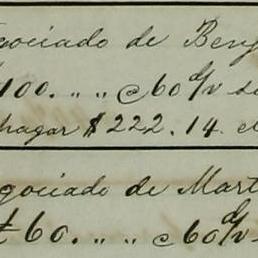 gociado de Benj
100. „ „ c 60 d/v
pagar $222.14. el
gociado de Mart
£ 60. „ „ c 60 d/v